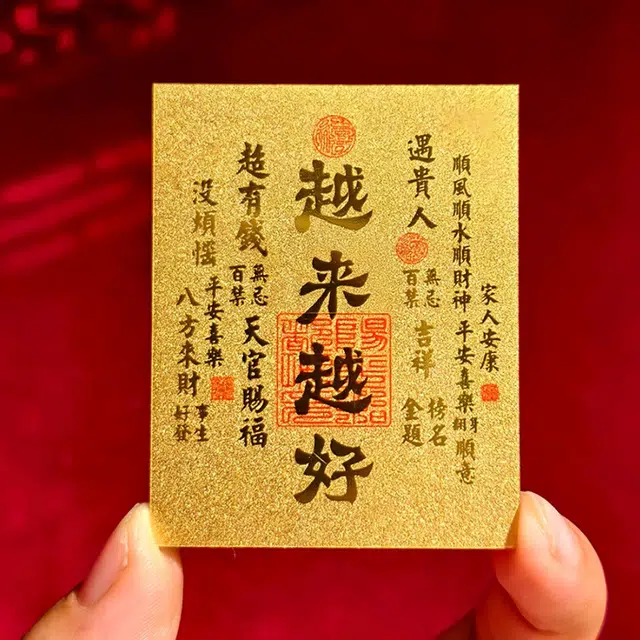 家人安康
順風順水順財神
平安喜樂
順意
遇貴人
百無禁忌
吉祥
金榜題名
越来越好
超有錢
百無禁忌
天官賜福
没煩惱
平安喜樂
八方來財
好事發生